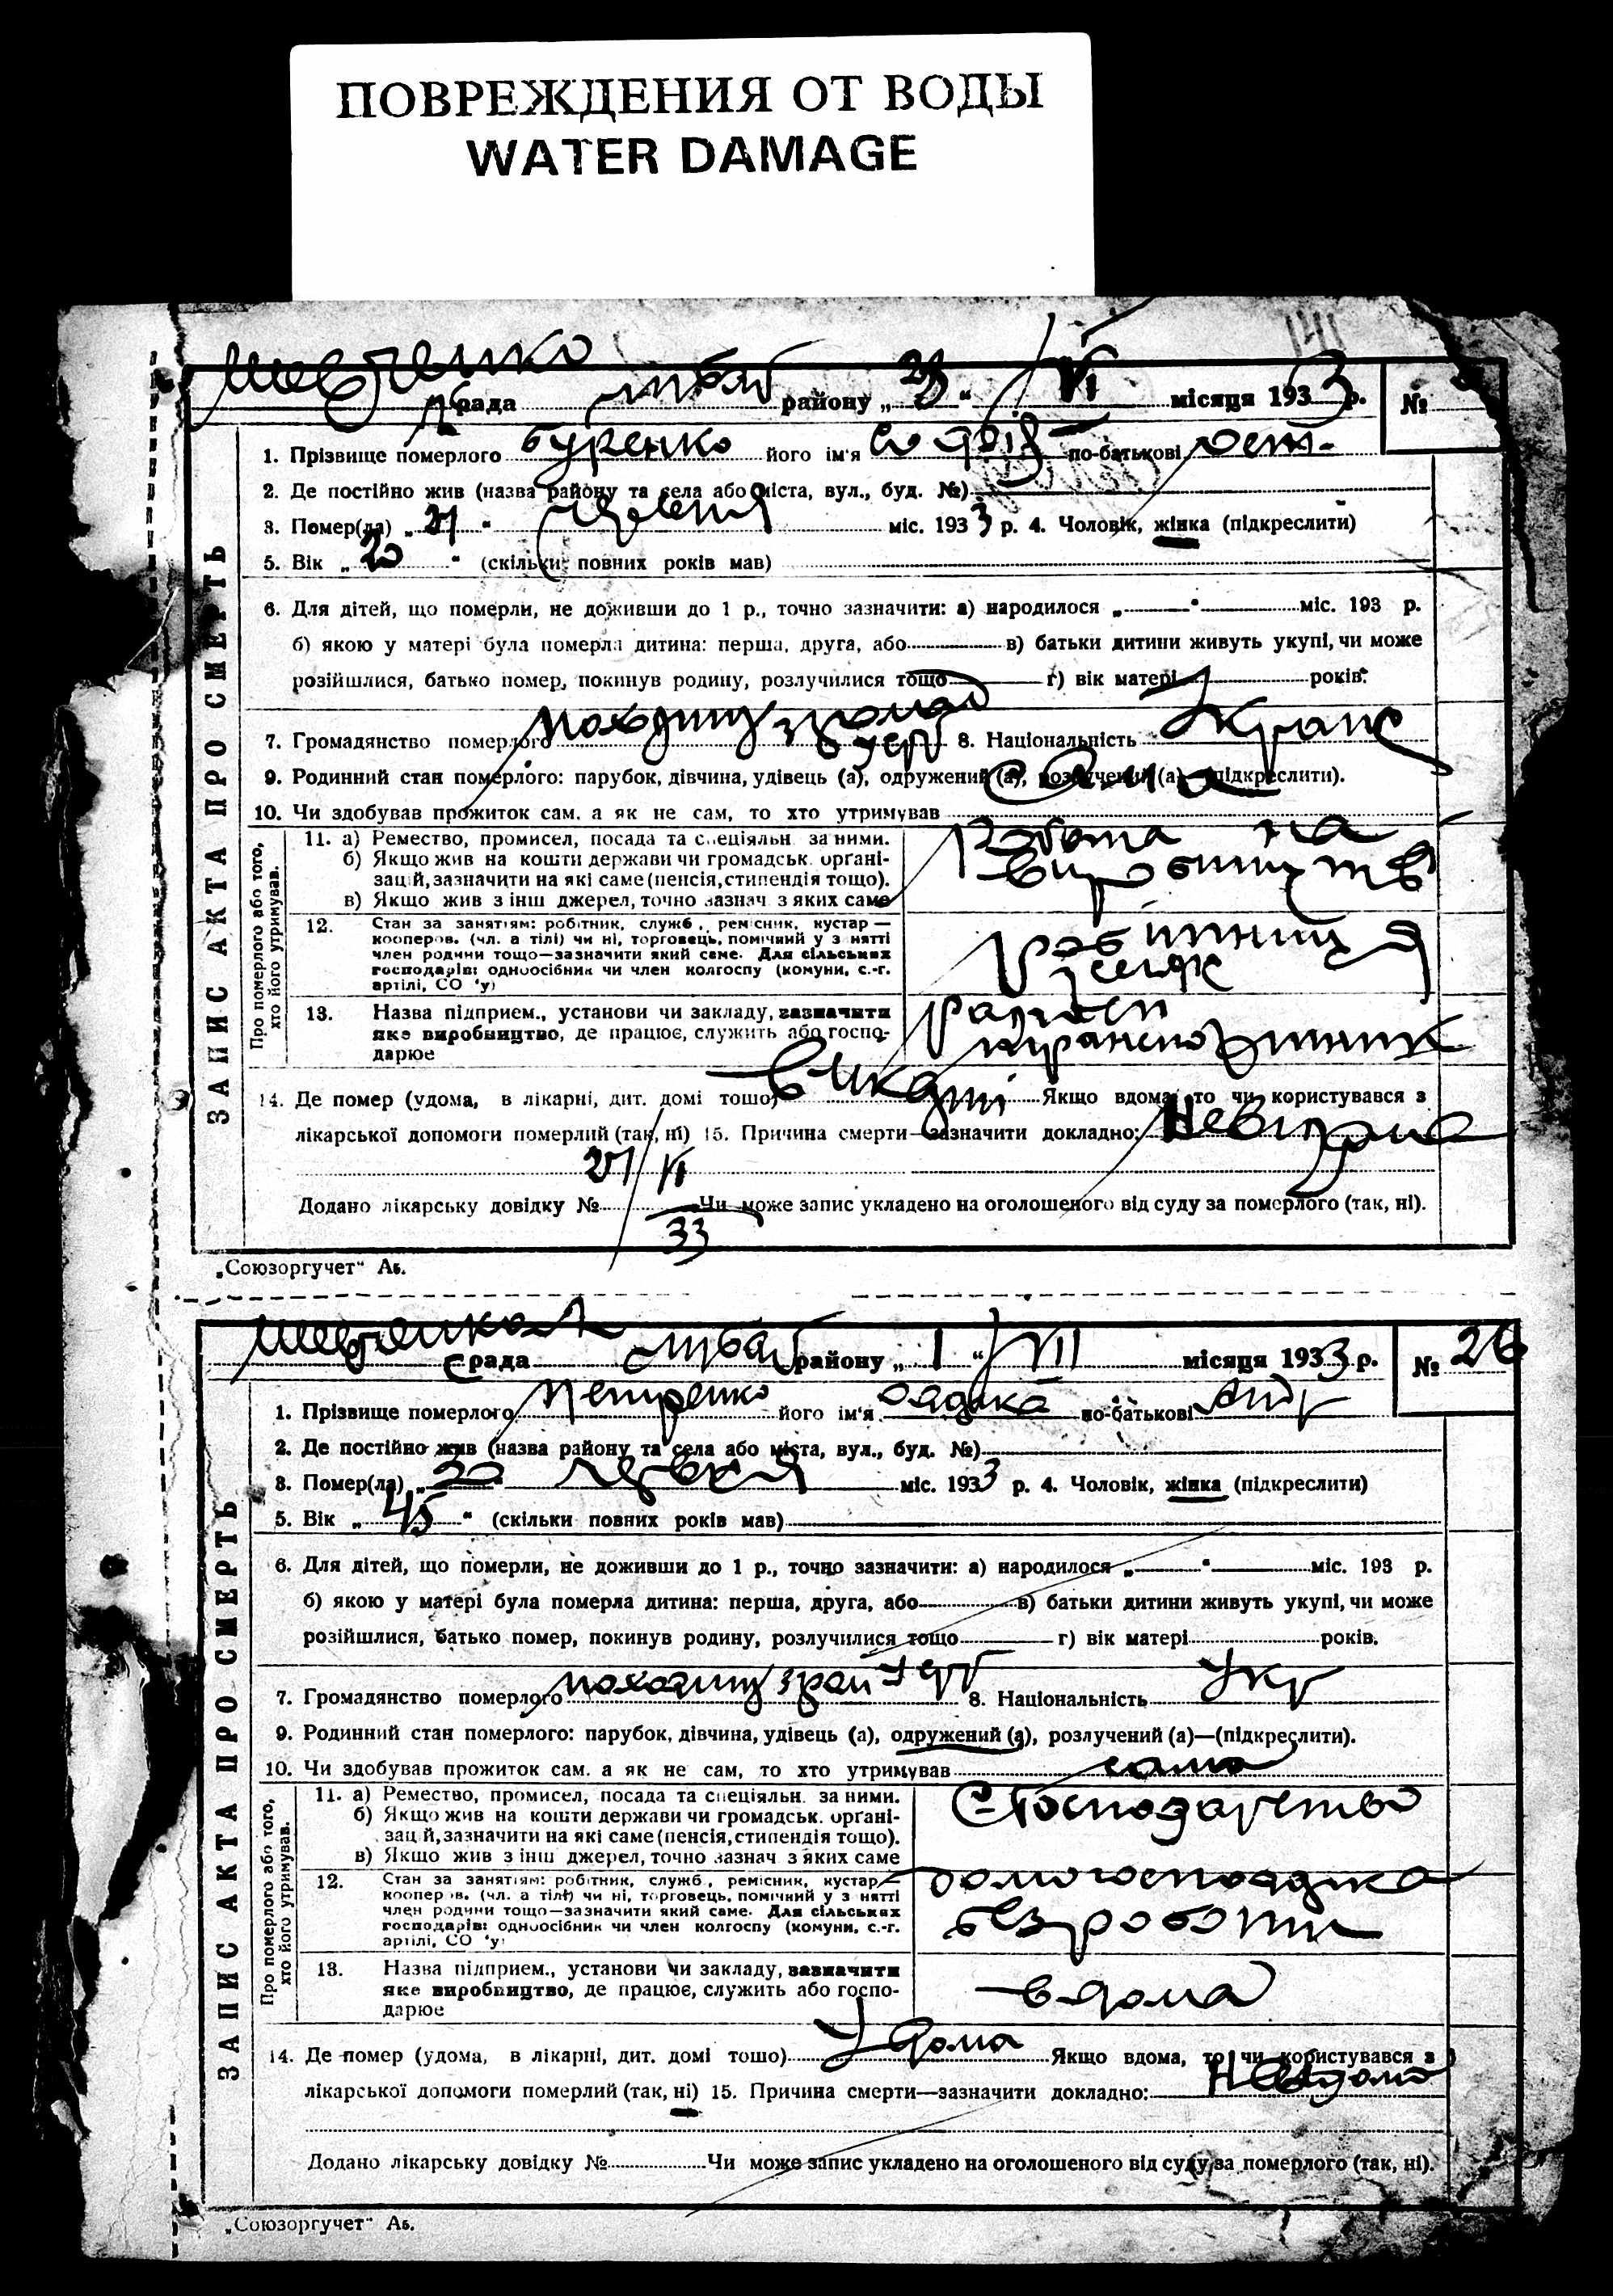 ПОВРЕЖДЕНИЯ ОТ ВОДЫ
WATER DAMAGE
141
ЗАПИС АКТА ПРО СМЕРТЬ
рада району „23“ VI місяця 1933 р. №
1. Прізвище померлого Буренко його ім'я по-батькові
2. Де постійно жив (назва району та села або міста, вул., буд. №)
3. Помер(ла) „21“ червня міс. 1933 р. 4. Чоловік, жінка (підкреслити)
5. Вік „20“ (скільки повних років мав)
6. Для дітей, що померли, не доживши до 1 р., точно зазначити: а) народилося „ “ міс. 193 р.
б) якою у матері була померла дитина: перша, друга, або в) батьки дитини живуть укупі, чи може
розійшлися, батько помер, покинув родину, розлучилися тощо г) вік матері років.
7. Громадянство померлого 8. Національність Укране
9. Родинний стан померлого: парубок, дівчина, удівець (а), одружений (а), розлучений (а) (підкреслити).
10. Чи здобував прожиток сам. а як не сам, то хто утримував Сама
Про померлого або того, хто його утримував.
11. а) Ремество, промисел, посада та спеціяльн за ними. Робота на
б) Якщо жив на кошти держави чи громадськ. орґані-
зацій, зазначити на які саме (пенсія, стипендія тощо).
в) Якщо жив з інш джерел, точно зазнач з яких саме
12. Стан за заняттям: робітник, служб., ремісник, кустар —
кооперов. (чл. а тілі) чи ні, торговець, помічний у з нятті
член родини тощо—зазначити який саме. Для сільських
господарів: одноосібник чи член колгоспу (комуни, с.-г.
артілі, СО у)
13. Назва підприєм., установи чи закладу, зазначити
яке виробництво, де працює, служить або госпо-
дарює
14. Де помер (удома, в лікарні, дит. домі тошо) Якщо вдома, то чи користувався з
лікарської допомоги померлий (так, ні) 15. Причина смерти—зазначити докладно:
21/VI
33
Додано лікарську довідку № Чи може запис укладено на оголошеного від суду за померлого (так, ні).
„Союзоргучет“ Аб.
ЗАПИС АКТА ПРО СМЕРТЬ
рада району „1“ VII місяця 1933 р. № 26
1. Прізвище померлого Петренко його ім'я по-батькові Андр
2. Де постійно жив (назва району та села або міста, вул., буд. №)
3. Помер(ла) „ “ червня міс. 1933 р. 4. Чоловік, жінка (підкреслити)
5. Вік „45“ (скільки повних років мав)
6. Для дітей, що померли, не доживши до 1 р., точно зазначити: а) народилося „ “ міс. 193 р.
б) якою у матері була померла дитина: перша, друга, або в) батьки дитини живуть укупі, чи може
розійшлися, батько помер, покинув родину, розлучилися тощо г) вік матері років.
7. Громадянство померлого 8. Національність Укр
9. Родинний стан померлого: парубок, дівчина, удівець (а), одружений (а), розлучений (а)—(підкреслити).
10. Чи здобував прожиток сам. а як не сам, то хто утримував сама
Про померлого або того, хто його утримував.
11. а) Ремество, промисел, посада та спеціяльн. за ними. Господарство
б) Якщо жив на кошти держави чи громадськ. орґані-
зац й, зазначити на які саме (пенсія, стипендія тощо).
в) Якщо жив з інш джерел, точно зазнач з яких саме
12. Стан за заняттям: робітник, служб., ремісник, кустар — домогосподарка
кооперов. (чл. а тілі) чи ні, торговець, помічний у з нятті
член родини тощо—зазначити який саме. Для сільських без роботи
господарів: одноосібник чи член колгоспу (комуни, с.-г.
артілі, СО у)
13. Назва підприєм., установи чи закладу, зазначити
яке виробництво, де працює, служить або госпо- вдома
дарює
14. Де помер (удома, в лікарні, дит. домі тошо) Удома Якщо вдома, то чи користувався з
лікарської допомоги померлий (так, ні) 15. Причина смерти—зазначити докладно: Невідомо
Додано лікарську довідку № Чи може запис укладено на оголошеного від суду за померлого (так, ні).
„Союзоргучет“ Аб.